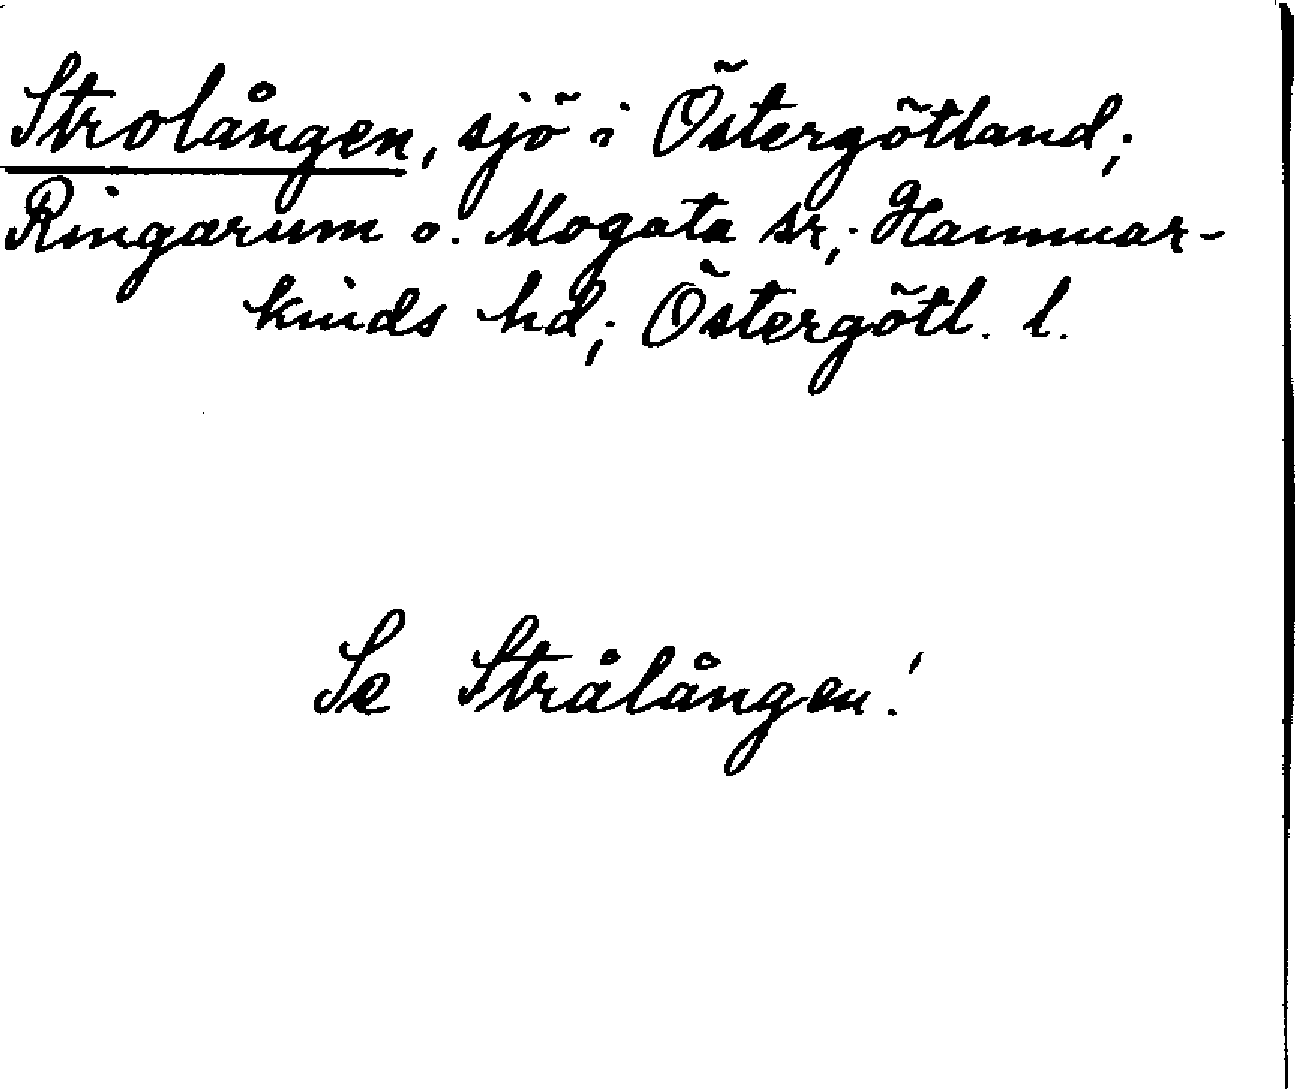 Strolången, sjö i Östergötland;
Ringarum o. Mogata sr; Hammar-
kinds hd; Östergötl. l.
Se Strålången!